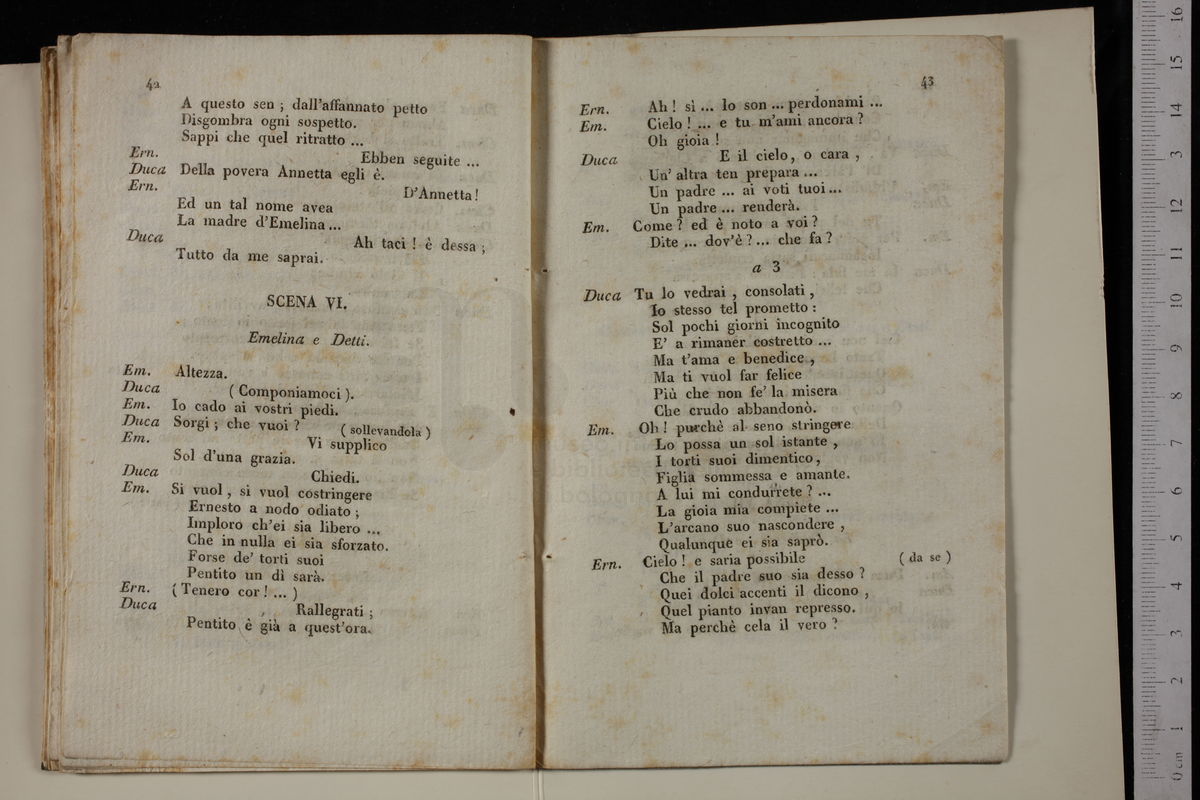 42
A questo sen ; dall'affannato petto
Disgombra ogni sospetto.
Sappi che quel ritratto ...
Ern. Ebben seguite ...
Duca Della povera Annetta egli è.
Ern. D'Annetta!
Ed un tal nome avea
La madre d'Emelina ...
Duca Ah taci ! è dessa ;
Tutto da me saprai.
SCENA VI.
Emelina e Detti.
Em. Altezza.
Duca ( Componiamoci ).
Em. Io cado ai vostri piedi.
Duca Sorgi ; che vuoi ? ( sollevandola )
Em. Vi supplico
Sol d'una grazia.
Duca Chiedi.
Em. Si vuol , si vuol costringere
Ernesto a nodo odiato ;
Imploro ch'ei sia libero ...
Che in nulla ei sia sforzato.
Forse de' torti suoi
Pentito un dì sarà.
Ern. ( Tenero cor ! ... )
Duca Rallegrati ;
Pentito è già a quest'ora.
43
Ern. Ah ! sì ... Io son ... perdonami ...
Em. Cielo ! ... e tu m'ami ancora ?
Oh gioia !
Duca E il cielo, o cara ,
Un' altra ten prepara ...
Un padre ... ai voti tuoi ...
Un padre ... renderà.
Em. Come ? ed è noto a voi ?
Dite ... dov'è ? ... che fa ?
a 3
Duca Tu lo vedrai , consolati ,
Io stesso tel prometto :
Sol pochi giorni incognito
E' a rimaner costretto ...
Ma t'ama e benedice ,
Ma ti vuol far felice
Più che non fe' la misera
Che crudo abbandonò.
Em. Oh ! purchè al seno stringere
Lo possa un sol istante ,
I torti suoi dimentico ,
Figlia sommessa e amante.
A lui mi condurrete ? ...
La gioia mia compiete ...
L'arcano suo nascondere ,
Qualunque ei sia saprò.
Ern. Cielo ! e saria possibile ( da se )
Che il padre suo sia desso ?
Quei dolci accenti il dicono ,
Quel pianto invan represso.
Ma perchè cela il vero ?
0 cm 1 2 3 4 5 6 7 8 9 10 11 12 13 14 15 16